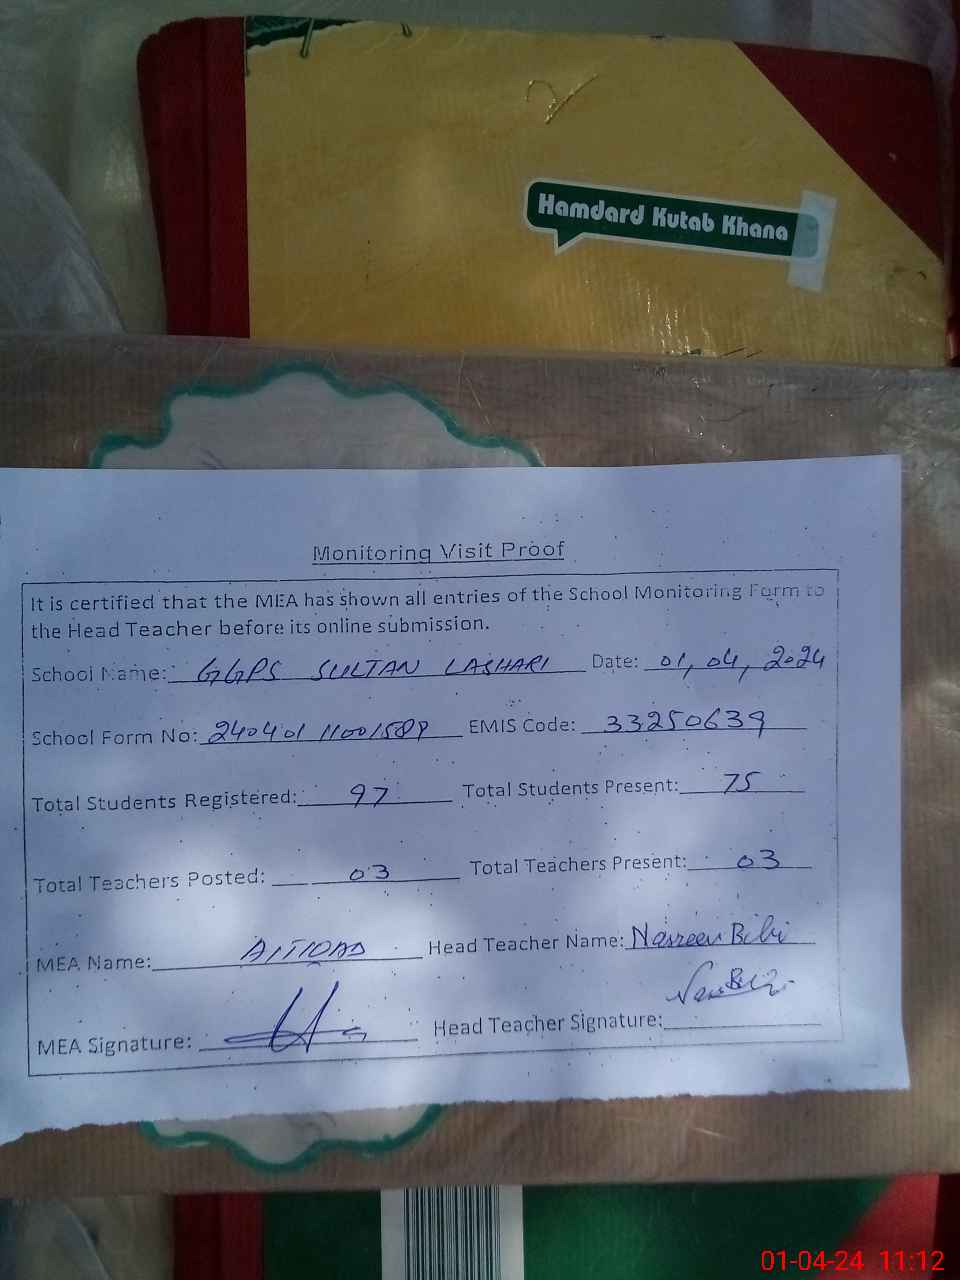 Hamdard Kutab Khana
Monitoring Visit Proof
It is certified that the MEA has shown all entries of the School Monitoring Form to
the Head Teacher before its online submission.
School Name: GGPS SULTAN LASHARI Date: 01, 04, 2024
School Form No: EMIS Code: 33250639
Total Students Registered: 97 Total Students Present: 75
Total Teachers Posted: 03 Total Teachers Present: 03
MEA Name: Head Teacher Name: Nasreen Bibi
MEA Signature: Head Teacher Signature:
01-04-24 11:12